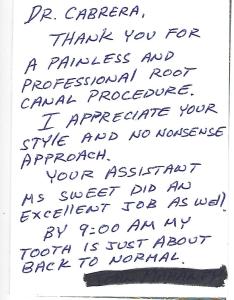 DR. CABRERA,
THANK YOU FOR
A PAINLESS AND
PROFESSIONAL ROOT
CANAL PROCEDURE.
I APPRECIATE YOUR
STYLE AND NO NONSENSE
APPROACH.
YOUR ASSISTANT
MS SWEET DID AN
EXCELLENT JOB AS WELL.
BY 9:00 AM MY
TOOTH IS JUST ABOUT
BACK TO NORMAL.